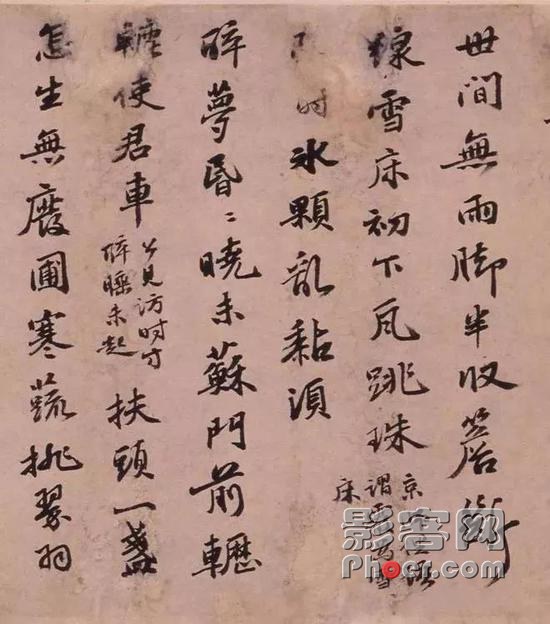 世間無雨脚半收簷斷
線雪床初下瓦跳珠
京
謂霰為雪
床
時冰顆乱黏湏
醉夢昏〻曉未蘇門前轣
轆使君車
公見訪時方
醉睡未起
扶頭一盞
怎生無廢圃寒蔬挑翠羽
影客网
Phoer.com